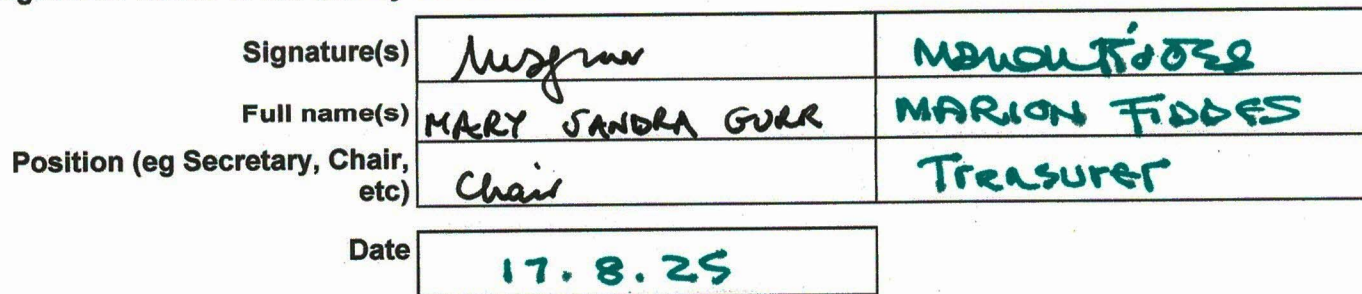 Signature(s) Marion Fiddes
Full name(s) MARY SANDRA GURR MARION FIDDES
Position (eg Secretary, Chair,
etc) Chair Treasurer
Date 17.8.25